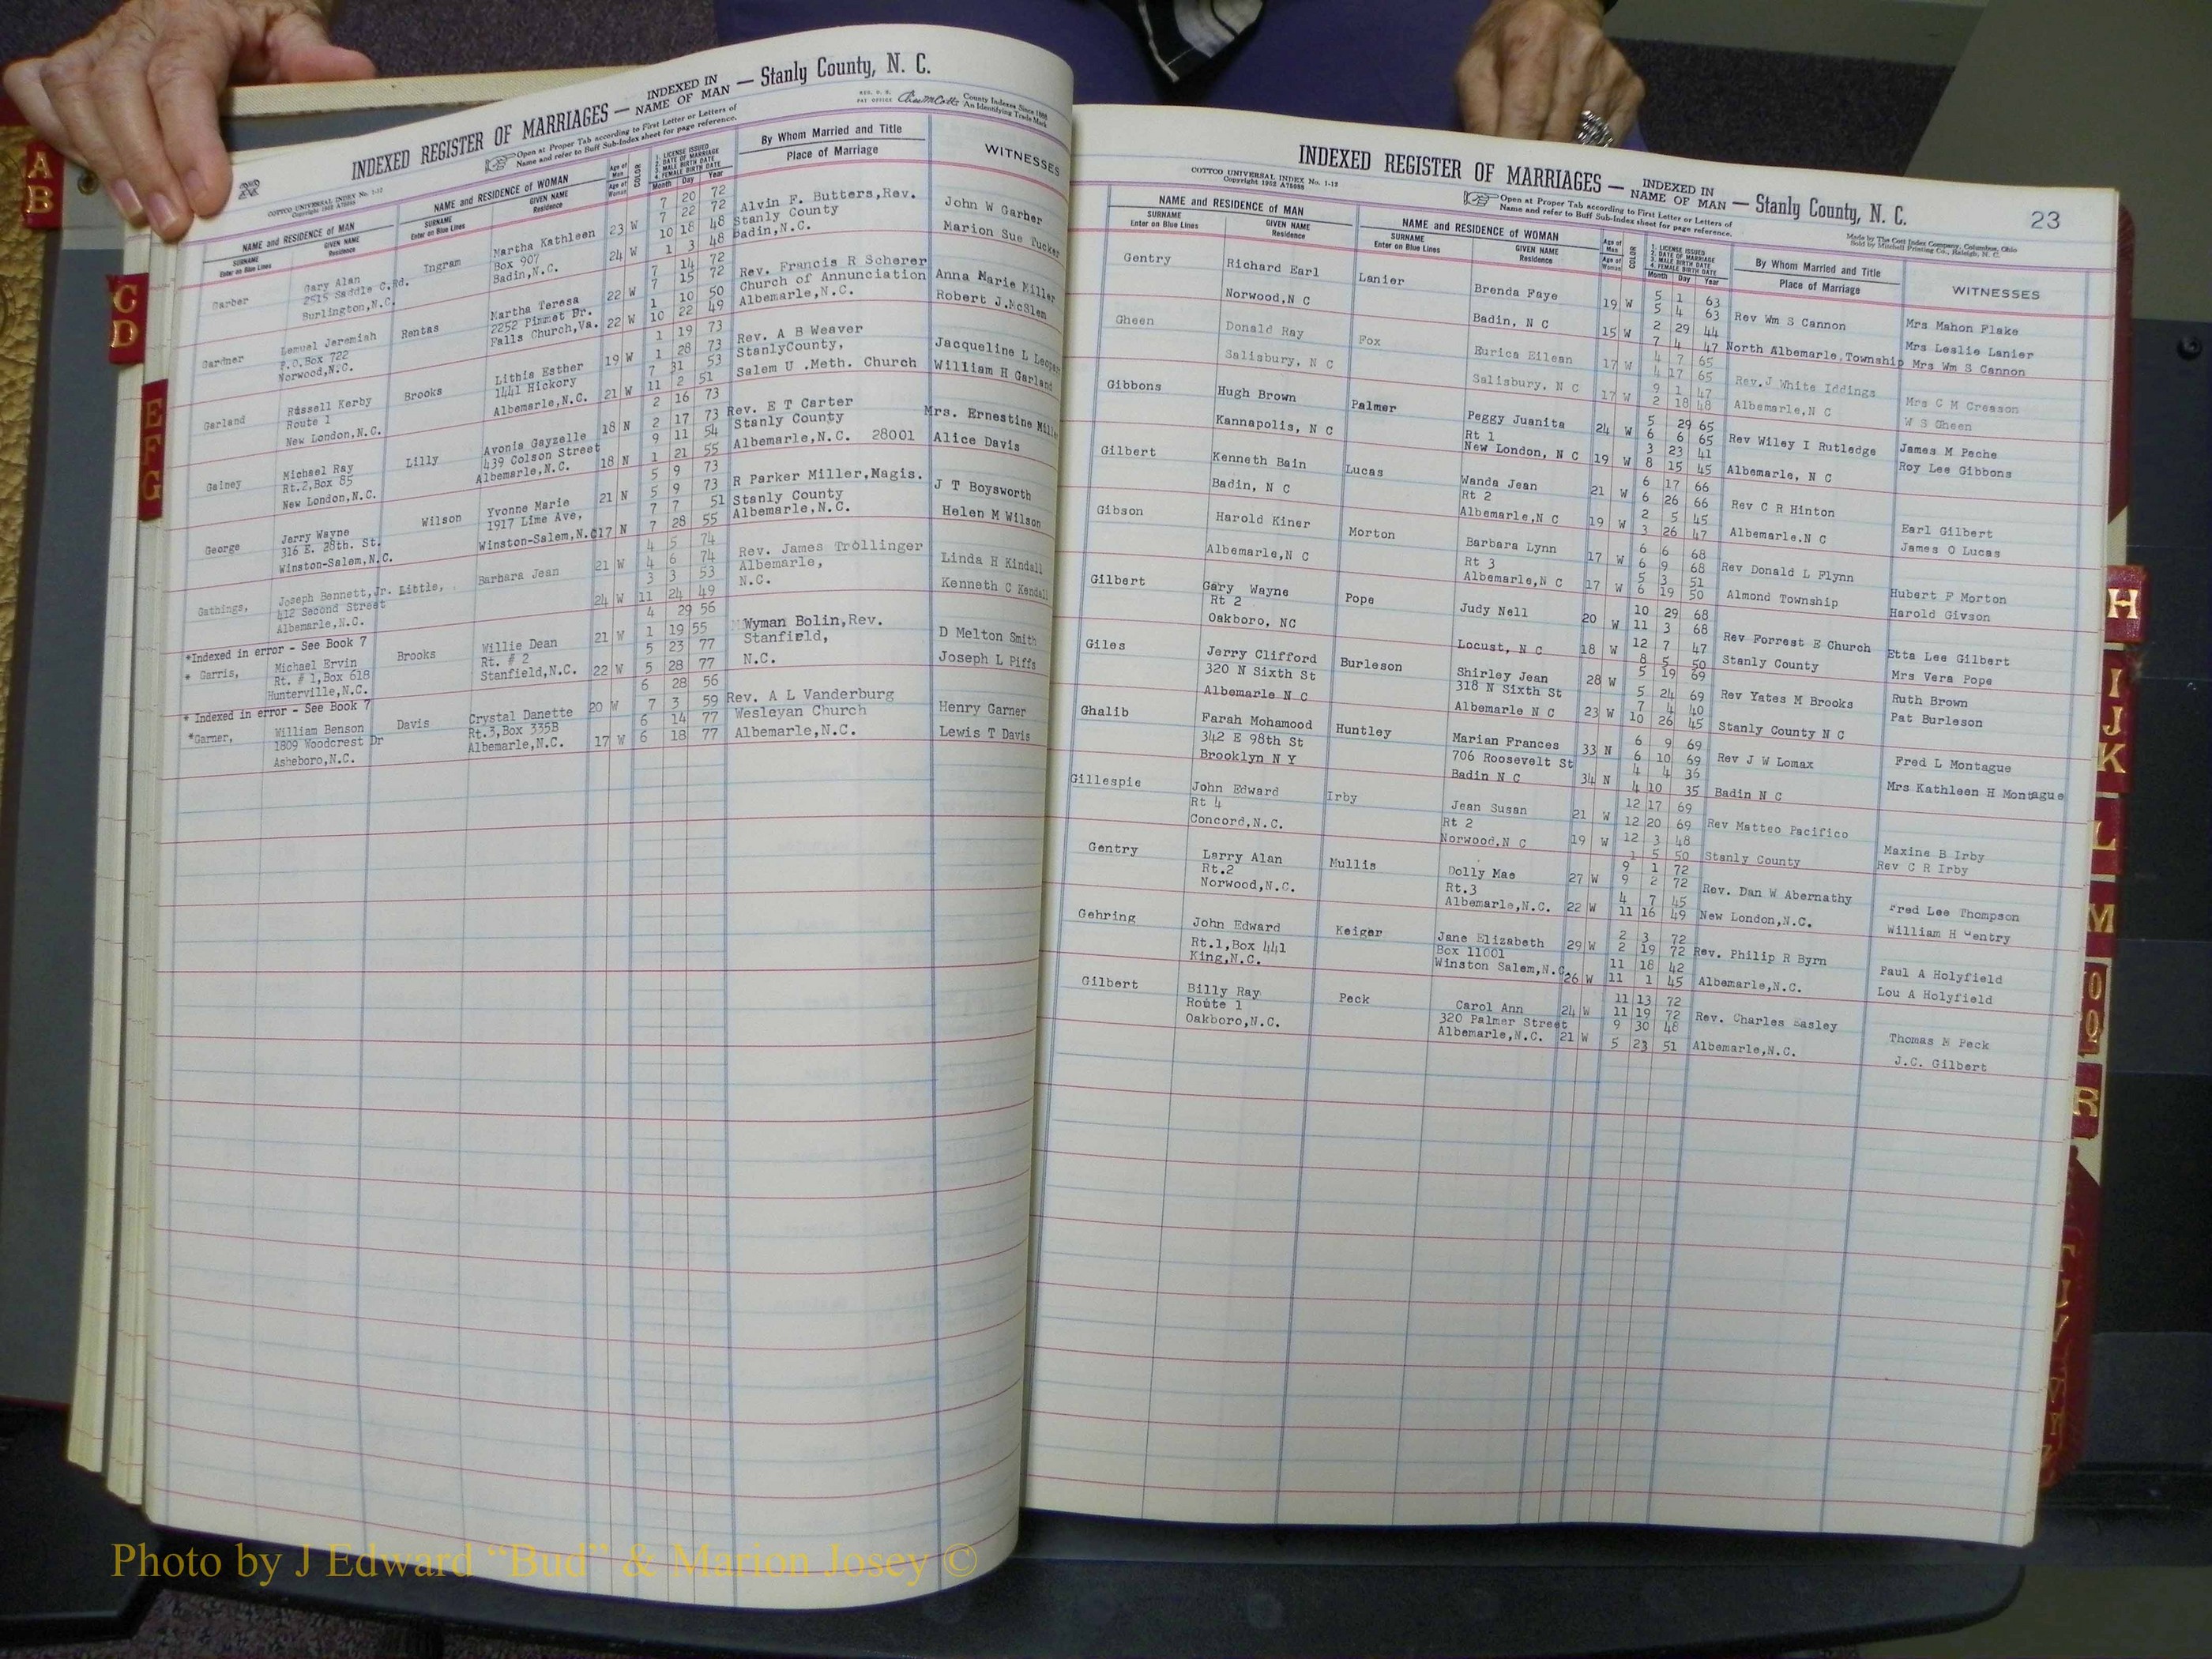 INDEXED REGISTER OF MARRIAGES — INDEXED IN NAME OF MAN — Stanly County, N. C.
COTTCO UNIVERSAL INDEX No. 1-12
Copyright 1952 A75098
Open at Proper Tab according to First Letter or Letters of
Name and refer to Buff Sub-Index sheet for page reference.
County Indexes Since 1888
An Identifying Trade Mark
NAME and RESIDENCE OF MAN
SURNAME
Enter on Blue Lines
GIVEN NAME
Residence
NAME and RESIDENCE OF WOMAN
SURNAME
Enter on Blue Lines
GIVEN NAME
Residence
Age of Man
Age of Woman
COLOR
1. LICENSE ISSUED
2. DATE OF MARRIAGE
3. MALE BIRTH DATE
4. FEMALE BIRTH DATE
Month Day Year
By Whom Married and Title
Place of Marriage
WITNESSES
Garber Gary Alan Ingram Martha Kathleen 23 W 7 20 72 Alvin F. Butters,Rev. John W Garber
2515 Saddle C.Rd. Box 907 7 22 72 Stanly County
Burlington,N.C. Badin,N.C. 24 W 10 18 48 Badin,N.C. Marion Sue Tucker
1 3 48
Gardner Lemuel Jeremiah Rentas Martha Teresa 22 W 7 14 72 Rev. Francis R Scherer Anna Marie Miller
P.O.Box 722 2252 Pimmet Dr. 7 15 72 Church of Annunciation
Norwood,N.C. Falls Church,Va. 22 W 1 10 50 Albemarle,N.C. Robert J.McSlem
10 22 49
Garland Russell Kerby Brooks Lithia Esther 19 W 1 19 73 Rev. A B Weaver
Route 1 1441 Hickory 1 28 73 StanlyCounty, Jacqueline L
New London,N.C. Albemarle,N.C. 21 W 7 31 53 Salem U .Meth. Church William H Garland
11 2 51
Gainey Michael Ray Lilly Avonia Gayzelle 18 N 2 16 73 Rev. E T Carter Mrs. Ernestine
Rt.2,Box 85 439 Colson Street 2 17 73 Stanly County
New London,N.C. Albemarle,N.C. 18 N 9 11 54 Albemarle,N.C. 28001 Alice Davis
1 21 55
George Jerry Wayne Wilson Yvonne Marie 21 N 5 9 73 R Parker Miller,Magis. J T Boysworth
316 E. 28th. St. 1917 Lime Ave, 5 9 73 Stanly County
Winston-Salem,N.C. Winston-Salem,N.C 17 N 7 7 51 Albemarle,N.C. Helen M Wilson
7 28 55
Gathings, Joseph Bennett,Jr. Little, Barbara Jean 21 W 4 5 74 Rev. James Trollinger Linda H Kindall
412 Second Street 4 6 74 Albemarle,
Albemarle,N.C. 24 W 3 3 53 N.C. Kenneth C Kendall
11 24 49
*Indexed in error - See Book 7
* Garris, Michael Ervin Brooks Willie Dean 21 W 4 29 56 Wyman Bolin,Rev. D Melton Smith
Rt. # 1,Box 618 Rt. # 2 1 19 55 Stanfield,
Hunterville,N.C. Stanfield,N.C. 22 W 5 23 77 N.C. Joseph L Piffs
5 28 77
* Indexed in error - See Book 7
*Garner, William Benson Davis Crystal Danette 20 W 6 28 56 Rev. A L Vanderburg Henry Garner
1809 Woodcrest Dr Rt.3,Box 335B 7 3 59 Wesleyan Church
Asheboro,N.C. Albemarle,N.C. 17 W 6 14 77 Albemarle,N.C. Lewis T Davis
6 18 77
INDEXED REGISTER OF MARRIAGES — INDEXED IN NAME OF MAN — Stanly County, N. C.
23
COTTCO UNIVERSAL INDEX No. 1-12
Copyright 1952 A75098
Open at Proper Tab according to First Letter or Letters of
Name and refer to Buff Sub-Index sheet for page reference.
Made by The Cott Index Company, Columbus, Ohio
Sold by Mitchell Printing Co., Raleigh, N. C.
NAME and RESIDENCE OF MAN
SURNAME
Enter on Blue Lines
GIVEN NAME
Residence
NAME and RESIDENCE OF WOMAN
SURNAME
Enter on Blue Lines
GIVEN NAME
Residence
Age of Man
Age of Woman
COLOR
1. LICENSE ISSUED
2. DATE OF MARRIAGE
3. MALE BIRTH DATE
4. FEMALE BIRTH DATE
Month Day Year
By Whom Married and Title
Place of Marriage
WITNESSES
Gentry Richard Earl Lanier Brenda Faye 19 W 5 1 63 Rev Wm S Cannon Mrs Mahon Flake
5 4 63 Mrs Leslie Lanier
Norwood,N C Badin, N C 15 W 2 29 44 North Albemarle,Township Mrs Wm S Cannon
7 4 47
Gheen Donald Ray Fox Eurica Eilean 17 W 4 7 65 Rev.J White Iddings Mrs C M Creason
4 17 65
Salisbury, N C Salisbury, N C 17 W 9 1 47 Albemarle,N C W S Gheen
2 18 48
Gibbons Hugh Brown Palmer Peggy Juanita 24 W 5 29 65 Rev Wiley I Rutledge James M Peche
Rt 1 6 6 65
Kannapolis, N C New London, N C 19 W 3 23 41 Albemarle, N C Roy Lee Gibbons
8 15 45
Gilbert Kenneth Bain Lucas Wanda Jean 21 W 6 17 66 Rev C R Hinton Earl Gilbert
Rt 2 6 26 66
Badin, N C Albemarle,N C 19 W 2 5 45 Albemarle.N C James O Lucas
3 26 47
Gibson Harold Kiner Morton Barbara Lynn 17 W 6 6 68 Rev Donald L Flynn Hubert F Morton
Rt 3 6 9 68
Albemarle,N C Albemarle,N C 17 W 5 3 51 Almond Township Harold Givson
6 19 50
Gilbert Gary Wayne Pope Judy Nell 20 W 10 29 68 Rev Forrest E Church Etta Lee Gilbert
Rt 2 11 3 68
Oakboro, NC Locust, N C 18 W 12 7 47 Stanly County Mrs Vera Pope
8 5 50
Giles Jerry Clifford Burleson Shirley Jean 28 W 5 19 69 Rev Yates M Brooks Ruth Brown
320 N Sixth St 318 N Sixth St 5 24 69
Albemarle N C Albemarle N C 23 W 7 4 40 Stanly County N C Pat Burleson
10 26 45
Ghalib Farah Mohamood Huntley Marian Frances 33 N 6 9 69 Rev J W Lomax Fred L Montague
342 E 98th St 706 Roosevelt St 6 10 69
Brooklyn N Y Badin N C 34 N 4 4 36 Badin N C Mrs Kathleen H Montague
4 10 35
Gillespie John Edward Irby Jean Susan 21 W 12 17 69 Rev Matteo Pacifico Maxine B Irby
Rt 4 Rt 2 12 20 69
Concord,N.C. Norwood,N C 19 W 12 3 48 Stanly County Rev C R Irby
1 5 50
Gentry Larry Alan Mullis Dolly Mae 27 W 9 1 72 Rev. Dan W Abernathy Fred Lee Thompson
Rt.2 Rt.3 9 2 72
Norwood,N.C. Albemarle,N.C. 22 W 4 7 45 New London,N.C. William H Gentry
11 16 49
Gehring John Edward Keiger Jane Elizabeth 29 W 2 3 72 Rev. Philip R Byrn Paul A Holyfield
Rt.1,Box 441 Box 11001 2 19 72
King,N.C. Winston Salem,N.C. 26 W 11 18 42 Albemarle,N.C. Lou A Holyfield
11 1 45
Gilbert Billy Ray Peck Carol Ann 24 W 11 13 72 Rev. Charles Easley Thomas M Peck
Route 1 320 Palmer Street 11 19 72
Oakboro,N.C. Albemarle,N.C. 21 W 9 30 48 Albemarle,N.C. J.C. Gilbert
5 23 51
A
B
C
D
E
F
G
H
I
J
K
L
M
O
Q
R
Photo by J Edward “Bud” & Marion Josey ©